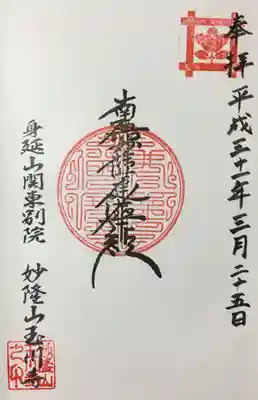 奉拝 平成三十一年三月二十五日
南無妙法蓮華経
身延山関東別院 妙隆山玉川寺